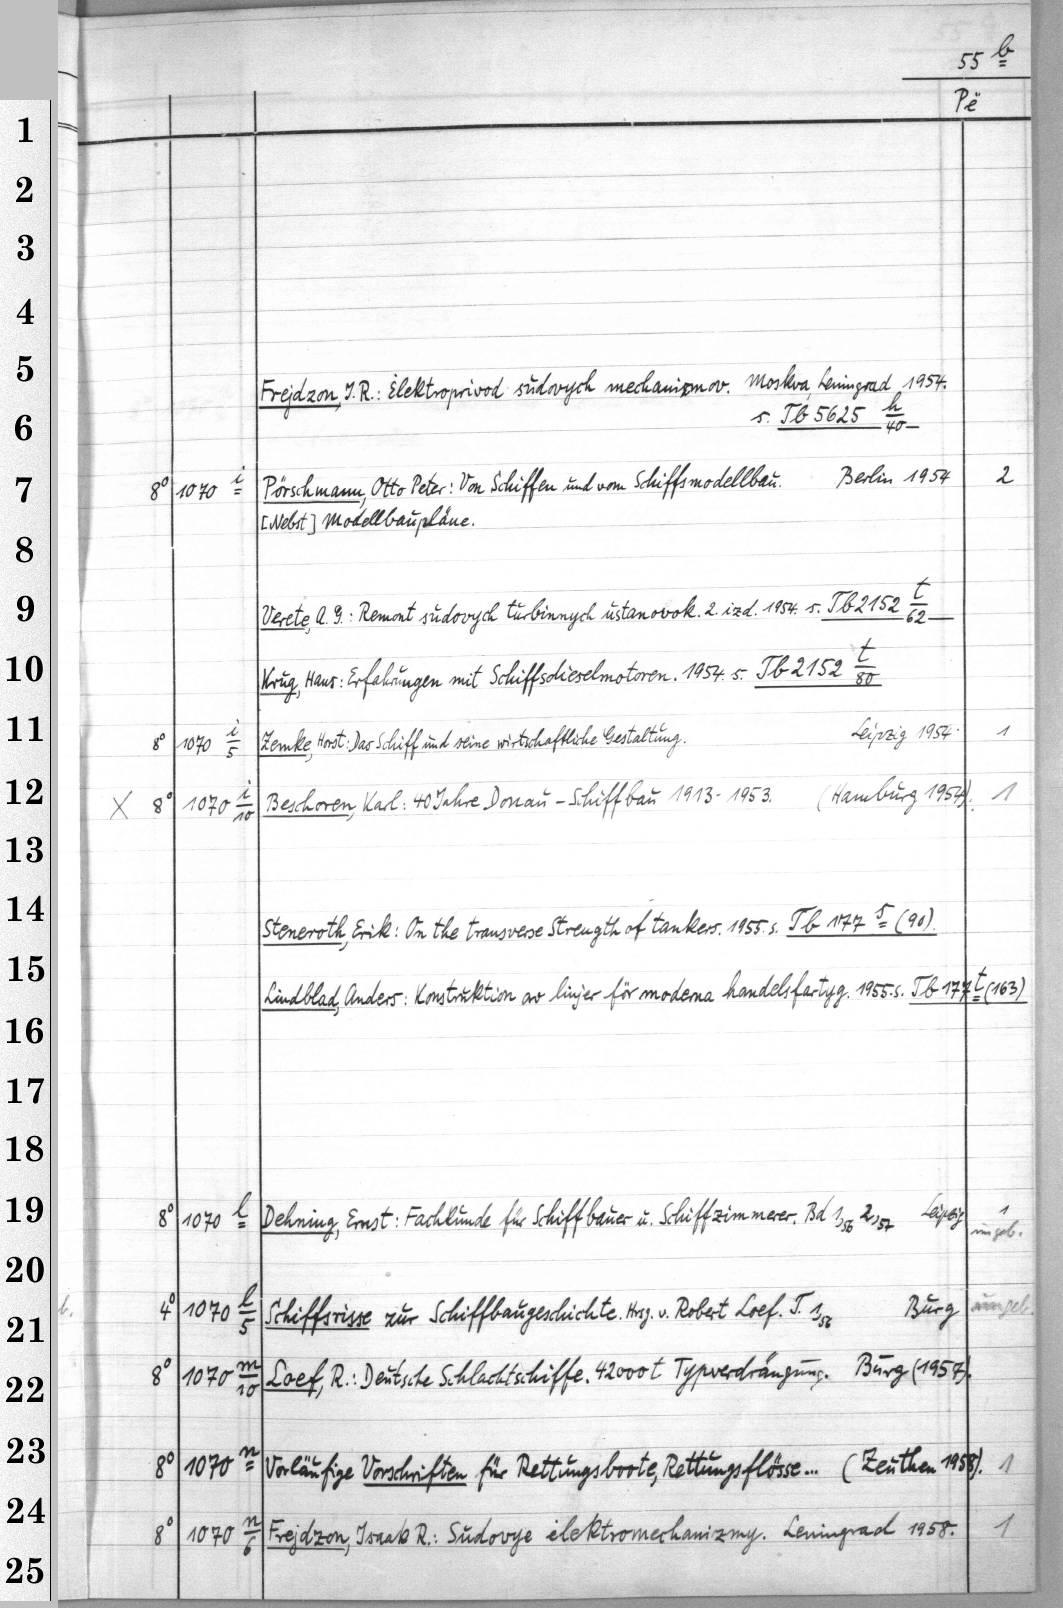 55 b
Pë
1
2
3
4
5
Frejdzon, I. R.: Elektroprivod sudovych mechanizmov. Moskva, Leningrad 1954.
6
s. Tb 5625 h/40
7
8° 1070 i Pörschmann, Otto Peter: Von Schiffen und vom Schiffsmodellbau. Berlin 1954 2
[Nebst] Modellbaupläne.
8
9
Verete, A. G.: Remont sudovych turbinnych ustanovok. 2. izd. 1954. s. Tb 2152 t/62
10
Krug, Hans: Erfahrungen mit Schiffsdieselmotoren. 1954. s. Tb 2152 t/80
11
8° 1070 i/5 Zemke, Horst: Das Schiff und seine wirtschaftliche Gestaltung. Leipzig 1954. 1
12
X 8° 1070 i/10 Beschoren, Karl: 40 Jahre Donau-Schiffbau 1913-1953. (Hamburg 1954). 1
13
14
Steneroth, Erik: On the transverse Strength of tankers. 1955. s. Tb 177 s (90).
15
Lindblad, Anders: Konstruktion av linjer för moderna handelsfartyg. 1955. s. Tb 177 t (163)
16
17
18
19
8° 1070 l Dehning, Ernst: Fachkunde für Schiffbauer u. Schiffzimmerer. Bd 1,56 2,57 Leipzig 1
ungeb.
20
b. 4° 1070 l/5 Schiffsrisse zur Schiffbaugeschichte. Hrsg. v. Robert Loef. T. 1,56 Burg ungeb.
21
8° 1070 m/10 Loef, R.: Deutsche Schlachtschiffe. 42000 t Typverdrängung. Burg (1957).
22
23
8° 1070 n Vorläufige Vorschriften für Rettungsboote, Rettungsflösse... (Zeuthen 1958). 1
24
8° 1070 n/6 Frejdzon, Isaak R.: Sudovye elektromechanizmy. Leningrad 1958. 1
25